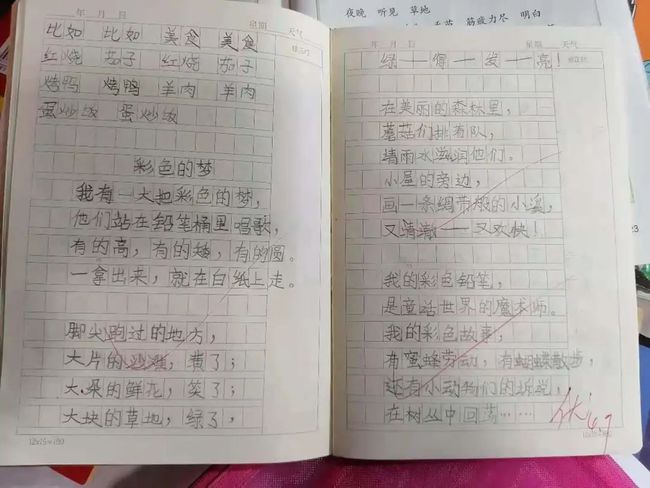 夜晚 听见 草地
筋疲力尽 明白
年 月 日 星期 天气
比如 比如 美食 美食
红烧 茄子 红烧 茄子
烤鸭 烤鸭 羊肉 羊肉
蛋炒饭 蛋炒饭
彩色的梦
我有一大把彩色的梦,
他们站在铅笔桶里唱歌,
有的高,有的矮,有的圆。
一拿出来,就在白纸上走。
脚尖跑过的地方,
大片的沙滩,黄了;
大朵的鲜花,笑了;
大块的草地,绿了,
12x15=180
年 月 日 星期 天气
绿——得——发——亮!
在美丽的森林里,
蘑菇们排着队,
请雨水滋润他们。
小屋的旁边,
画一条绸带般的小溪,
又清澈——又欢快!
我的彩色铅笔,
是童话世界的魔术师。
我的彩色故事,
有蜜蜂劳动,有蝴蝶散步,
还有小动物们的诉说,
在树丛中回荡……
优 6.7
23